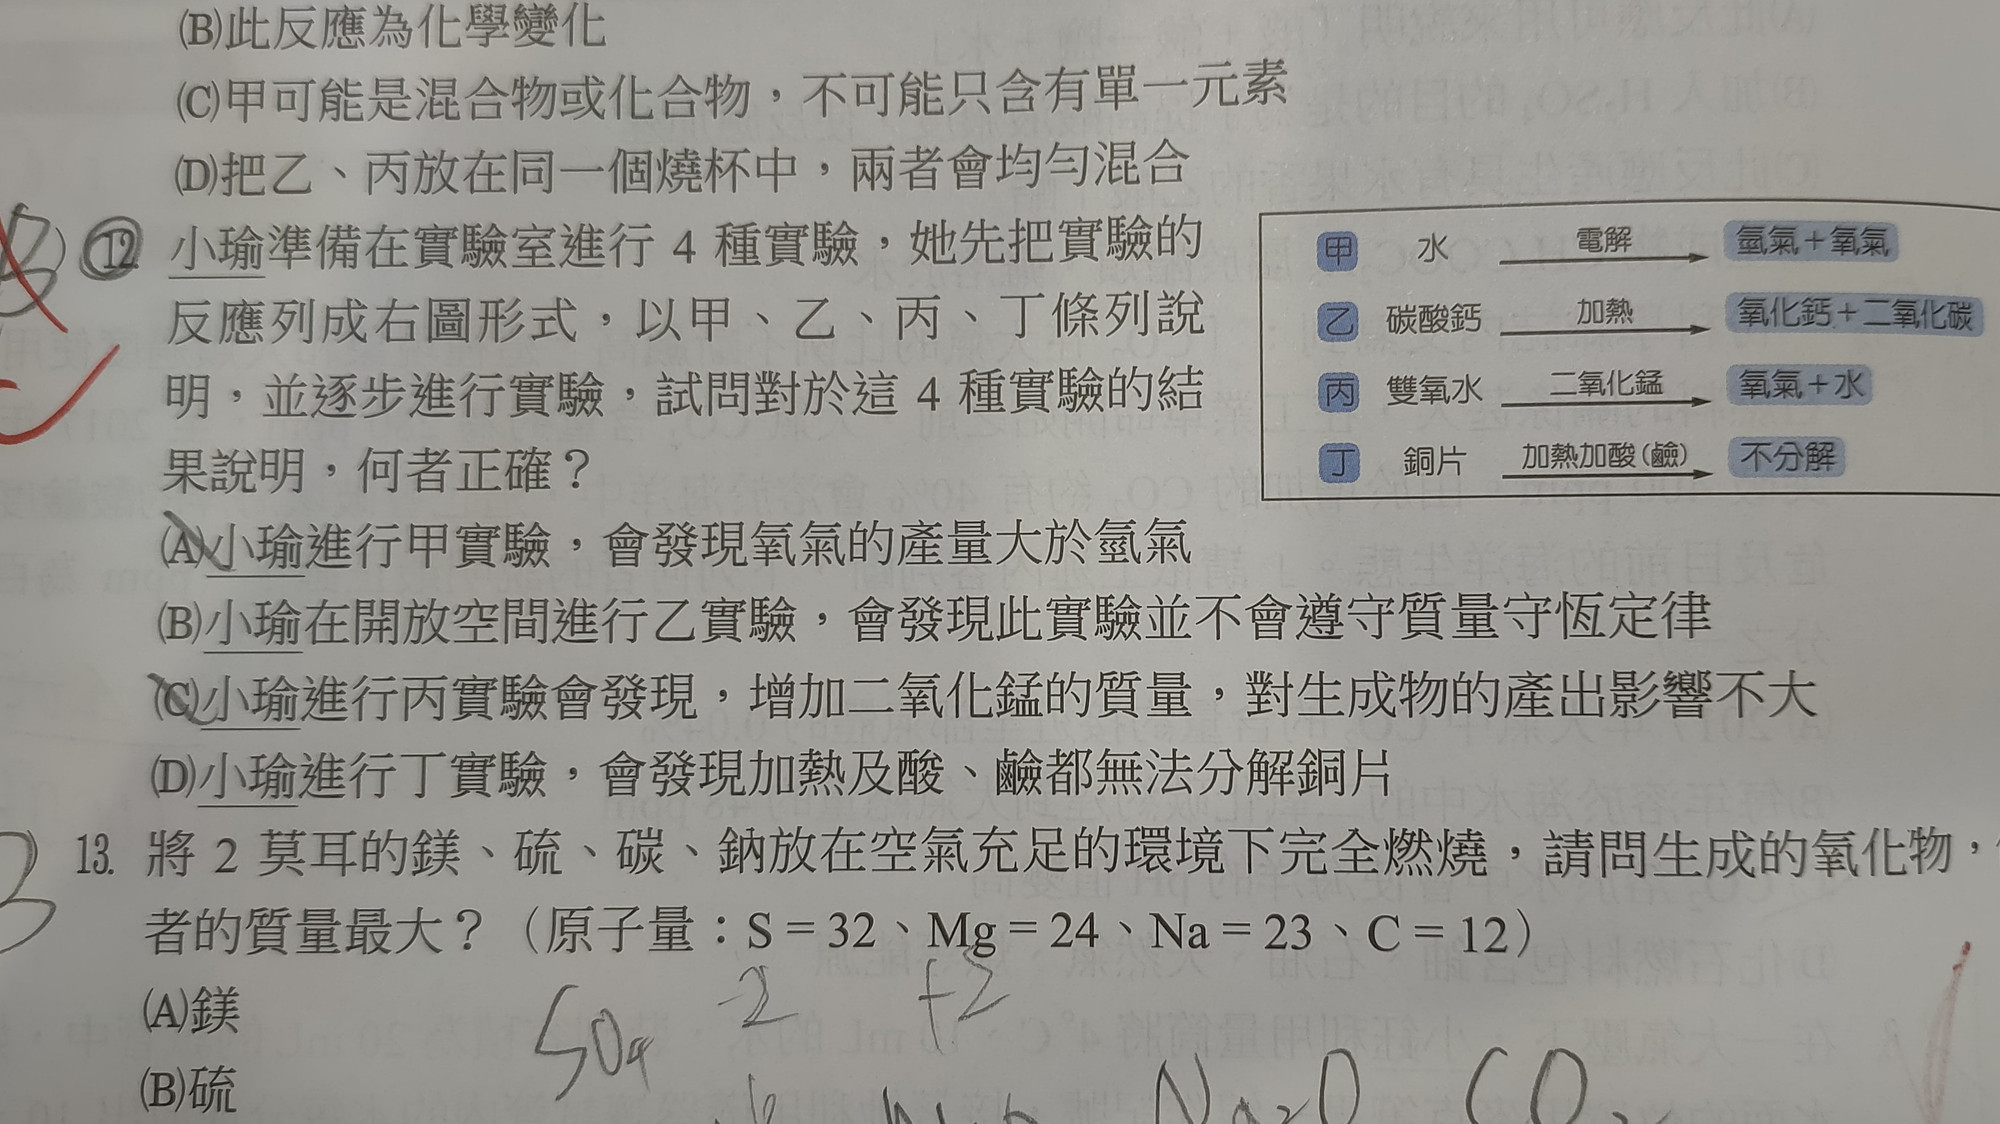 (B)此反應為化學變化
(C)甲可能是混合物或化合物，不可能只含有單一元素
(D)把乙、丙放在同一個燒杯中，兩者會均勻混合
12. 小瑜準備在實驗室進行 4 種實驗，她先把實驗的
反應列成右圖形式，以甲、乙、丙、丁條列說
明，並逐步進行實驗，試問對於這 4 種實驗的結
果說明，何者正確？
甲 水 電解 氫氣＋氧氣
乙 碳酸鈣 加熱 氧化鈣＋二氧化碳
丙 雙氧水 二氧化錳 氧氣＋水
丁 銅片 加熱加酸(鹼) 不分解
(A)小瑜進行甲實驗，會發現氧氣的產量大於氫氣
(B)小瑜在開放空間進行乙實驗，會發現此實驗並不會遵守質量守恆定律
(C)小瑜進行丙實驗會發現，增加二氧化錳的質量，對生成物的產出影響不大
(D)小瑜進行丁實驗，會發現加熱及酸、鹼都無法分解銅片
13. 將 2 莫耳的鎂、硫、碳、鈉放在空氣充足的環境下完全燃燒，請問生成的氧化物，
者的質量最大？（原子量：S = 32、Mg = 24、Na = 23、C = 12）
(A)鎂
-2 +2
SO4
(B)硫
Na2O CO2